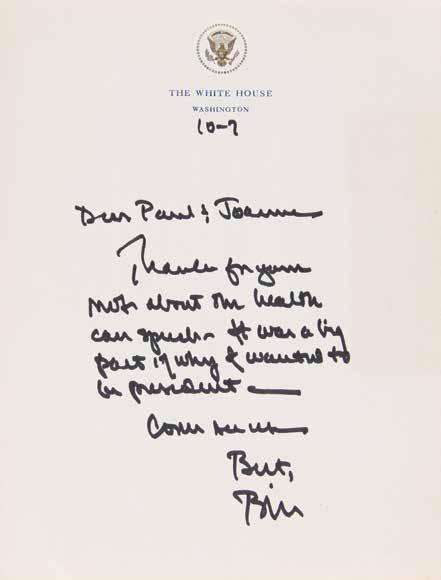 THE WHITE HOUSE
WASHINGTON
10-7
Dear Paul & Joanne
Thanks for your
note about the health
care speech - It was a big
part of why I wanted to
be president —
Come see us
Best,
Bill